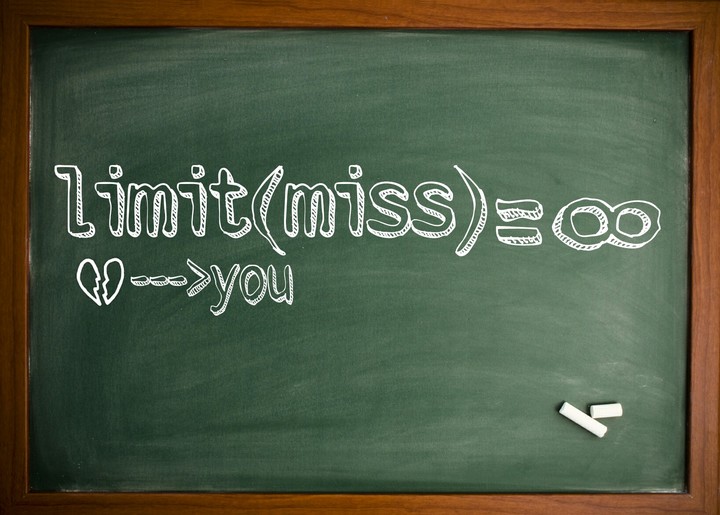 limit(miss)=∞
💔--->you